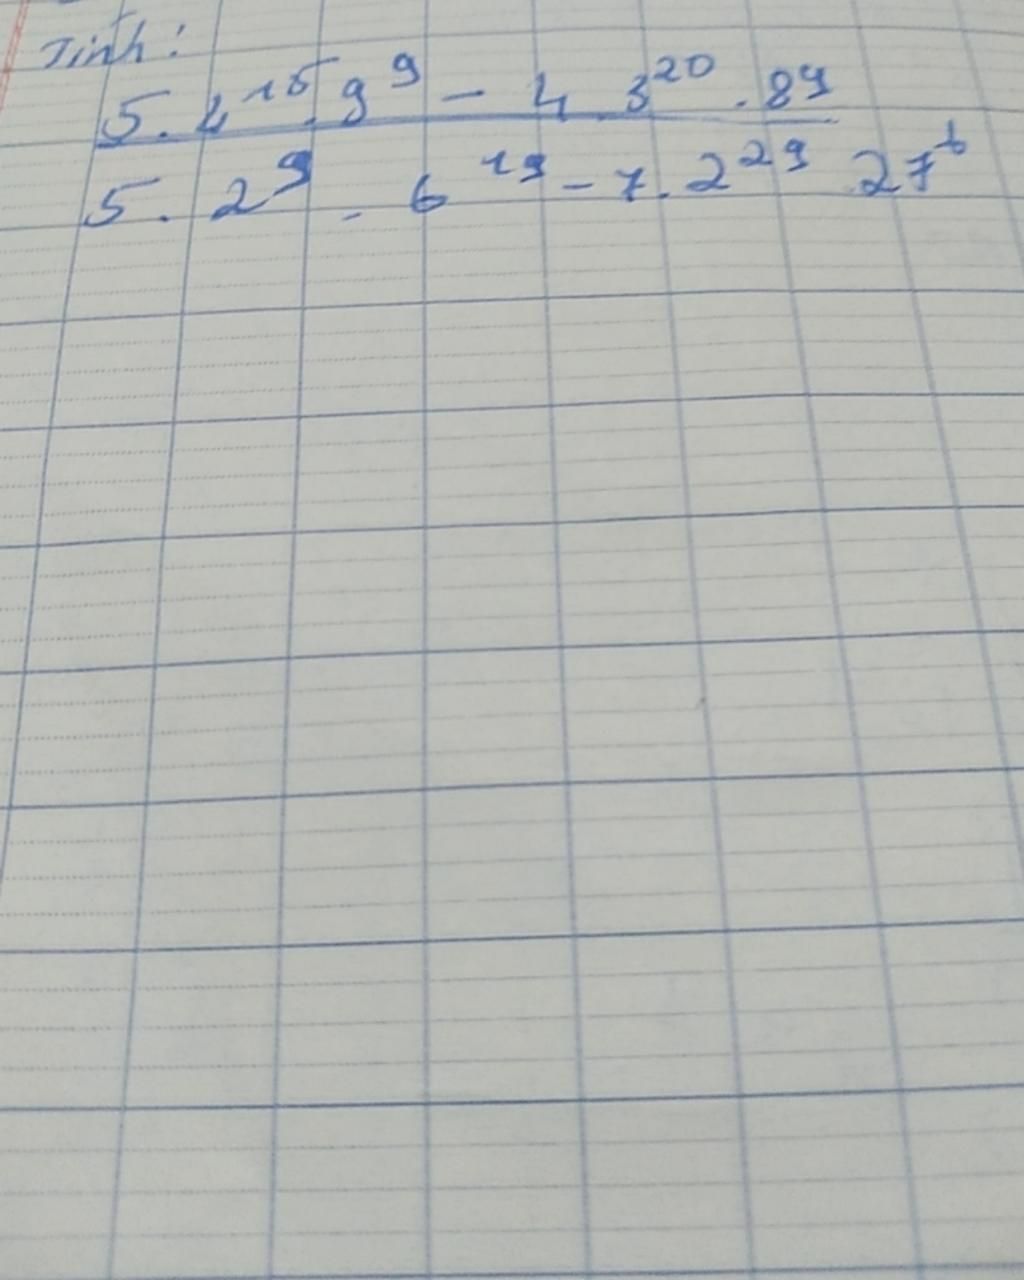 Tính:
5. 4¹⁵. 9⁹ - 4 3²⁰ . 8⁹
5. 2⁹ . 6¹⁹ - 7. 2²⁹ 27⁶